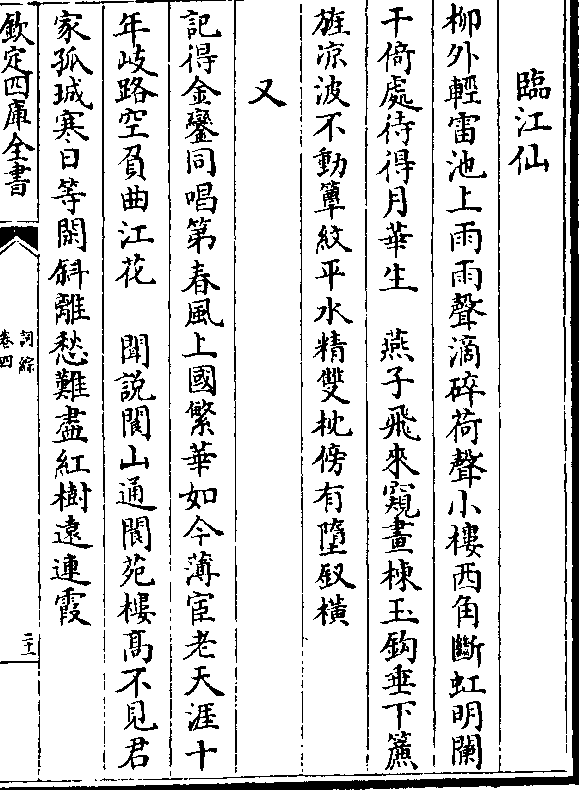 臨江仙
柳外輕雷池上雨雨聲滴碎荷聲小樓西角斷虹明闌
干倚處待得月華生　燕子飛來窺畫棟玉鈎垂下簾
旌凉波不動簟紋平水精雙枕傍有墮釵橫
又
記得金鑾同唱第春風上國繁華如今薄宦老天涯十
年岐路空負曲江花　聞說閬山通閬苑樓髙不見君
家孤城寒日等閒斜離愁難盡紅樹遠連霞
欽定四庫全書
詞綜
卷四